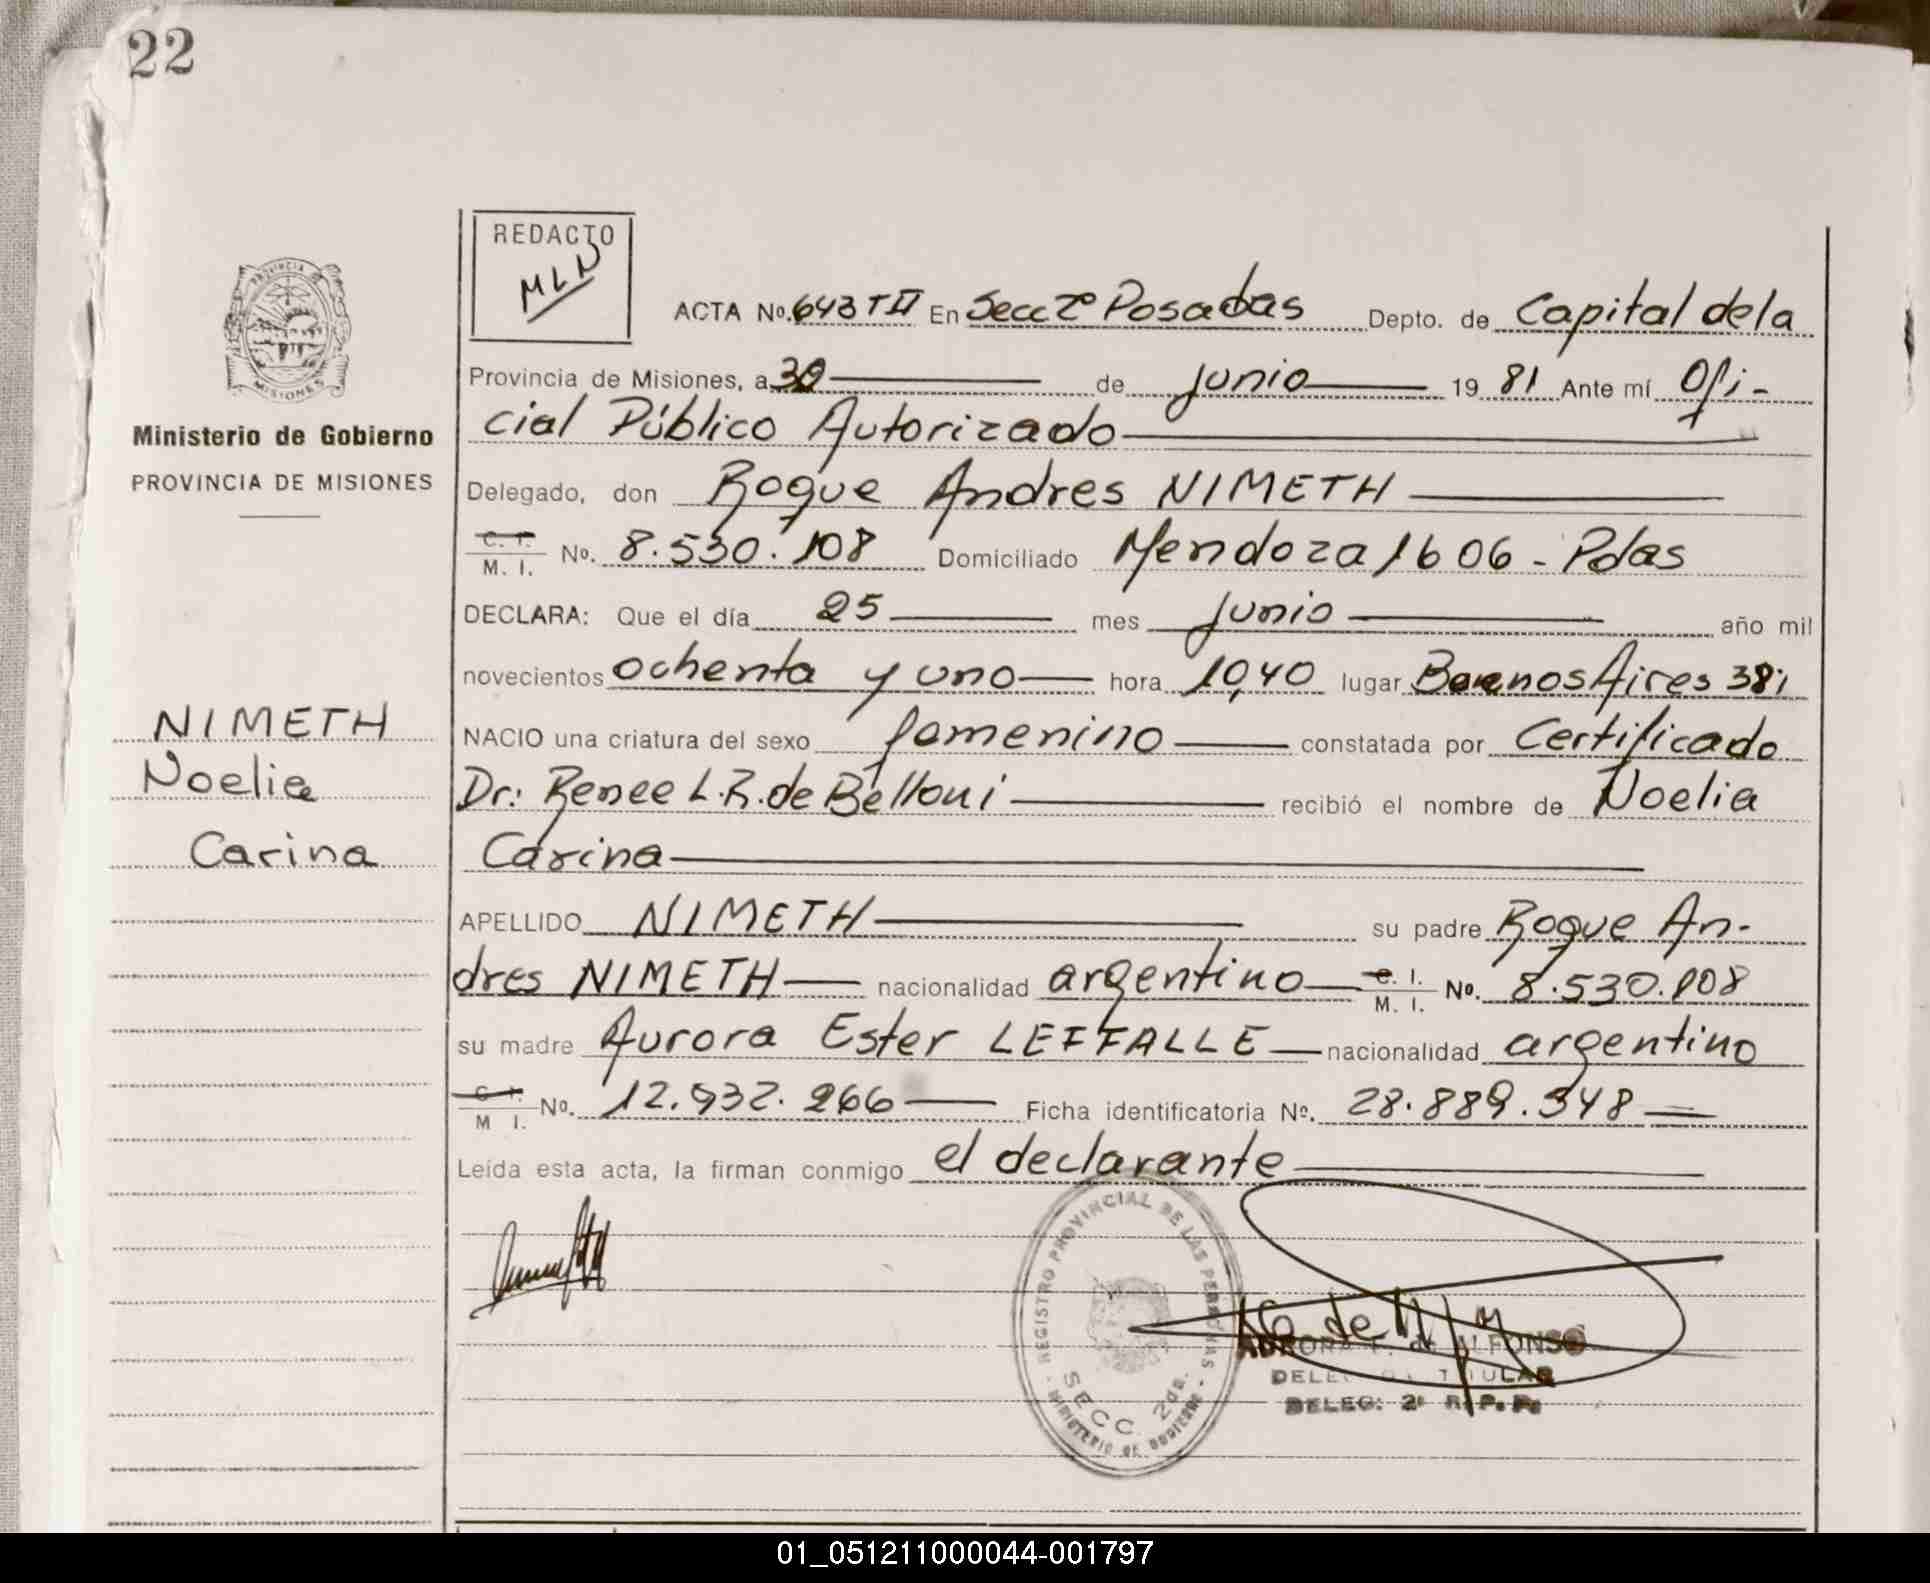 22
REDACTO
MLN
PROVINCIA DE
MISIONES
Ministerio de Gobierno
PROVINCIA DE MISIONES
ACTA No. 643 T II En Secc 2º Posadas Depto. de Capital de la
Provincia de Misiones, a 30 de junio 19 81 Ante mí Ofi-
cial Público Autorizado
Delegado, don Roque Andres NIMETH
C. I. M. I. No. 8.530.108 Domiciliado Mendoza 1606 - Pdas
DECLARA: Que el día 25 mes junio año mil
novecientos ochenta y uno hora 10,40 lugar Buenos Aires 381
NACIO una criatura del sexo femenino constatada por Certificado
Dr: Renee L.R. de Belloni recibió el nombre de Noelia
Carina
APELLIDO NIMETH su padre Roque An-
dres NIMETH nacionalidad argentino C. I. M. I. No. 8.530.108
su madre Aurora Ester LEFFALLE nacionalidad argentino
C. I. M I. No. 12.932.266 Ficha identificatoria No. 28.889.348
Leída esta acta, la firman conmigo el declarante
NIMETH
Noelia
Carina
REGISTRO PROVINCIAL DE LAS PERSONAS
SECC. 2da.
MINISTERIO DE GOBIERNO
de ALFONSO
TITULAR
DELEG: 2ª R. P. P.
01_051211000044-001797